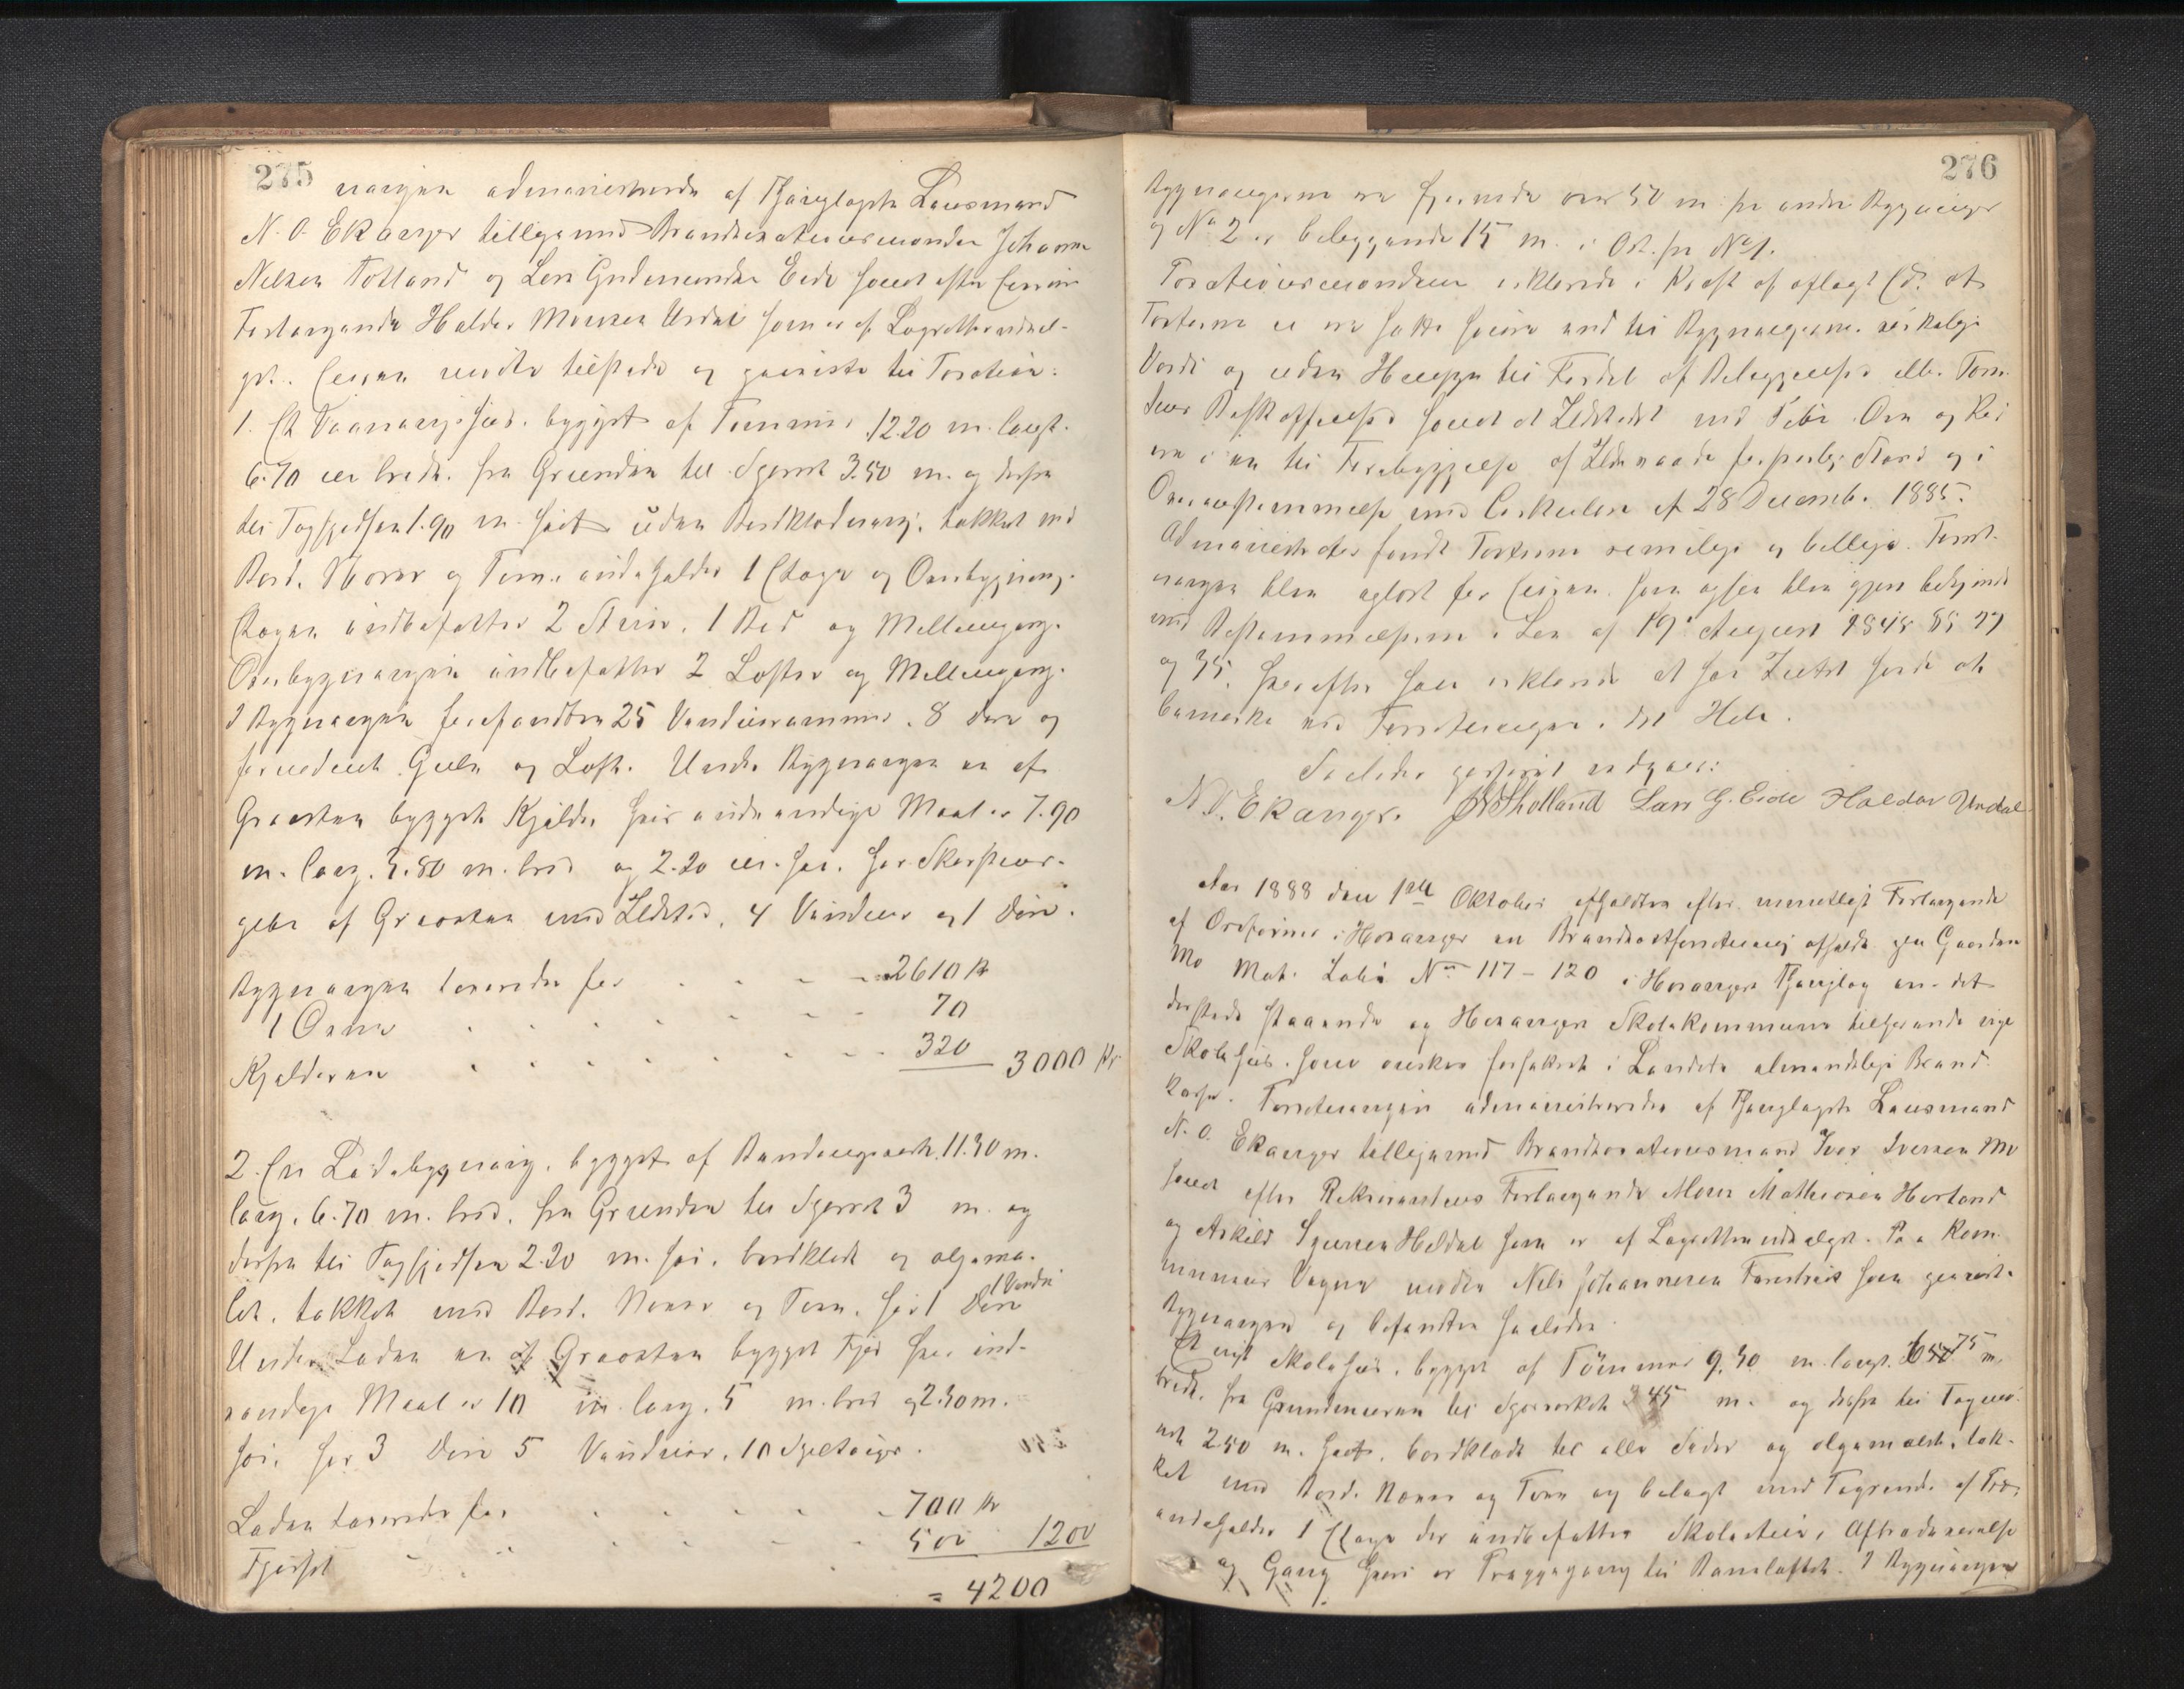 275
ningen administreredes af Thinglagets Lensmand
N. O. Ekanger tilligemed Brandtaxationsmændene Johannes
Nelsen Totland og Lars Gudmundsen Eide samt efter Eierens
Forlangende Haldor Monsen Urdal som er af Lagrettesudval-
get. Eieren mødte tilstede og paaviste til Taxation:
1. Et Vaaningshus, bygget af Tømmer 12.20 m. langt.
6.70 m bredt. fra Grunden til Sperret 3.50 m. og derfra
til Tagspidsen 1.90 m. høit uden Bordklædning, takket med
Bord, Næver og Torv, indeholder 1 Etage og Overbygning.
Etagen indbefatter 2 Stuer, 1 Bod og Mellemgang.
Overbygningen indbefatter 2 Lofter og Mellemgang.
I Bygningen forefandtes 25 Vinduesrammer, 8 Døre og
fornødent Gulv og Loft. Under Bygningen er af
Graasten bygget Kjelder hvis indvendige Maal er 7.90
m. lang. 3.80 m. bred og 2.20 m. høi. har Skorstens-
pibe af Graasten med Ildsted, 4 Vinduer og 1 Dør.
Bygningen taxeredes for 2610 Kr
1 Ovn 70
Kjelderen 320 3000 Kr
2. En Ladebygning, bygget af Bindingsverk 11.30 m.
lang, 6.70 m. bred, fra Grunden til Sperret 3 m. og
derfra til Tagspidsen 2.20 m. høi, bordklædt og oljema-
let, takket med Bord, Næver og Torv, har 1 Dør 1 Vindu
Under Laden er af Graasten bygget Fjøs hvis ind-
vendige Maal er 10 m. lang, 5 m. bred og 2.30 m.
høi, har 3 Døre 5 Vinduer, 10 Spiltouge.
Laden taxeredes for 700 Kr
Fjøset 500 1200
= 4200
276
Bygningerne er fjernede over 50 m. fra andre Bygninger
og No 2 er beliggende 15 m. i Ost. fra No 1.
Taxationsmændene erklærede i Kraft af aflagt Ed. at
Taxterne ei ere satte høiere end til Bygningernes virkelige
Værdi og uden Hensyn til Fordel af Beliggenhed eller Tom-
tens Beskaffenhed samt at Ildstedet med Pibe, Ovn og Rør
ere i en til Forebyggelse af Ildsvaade forsvarlig Stand og i
Overensstemmelse med Cirkulære af 28 Decemb. 1885.
Administrator fandt Taxterne rimelige og billige. Forret-
ningen blev oplæst for Eieren, som ogsaa blev gjort bekjendt
med Bestemmelserne i Lov af 19de August 1845 §§ 27
og 35. hvorefter han erklærede at han Intet havde at
bemerke ved Forretningen i det Hele.
Saaledes passeret vidner:
N. O. Ekanger. JNThotland Lars G. Eide Haldor Urdal
Aar 1888 den 1ste Oktober afholdtes efter mundtligt Forlangende
af Ordfører i Hosanger en Brandtaxtforretning afholdt paa Gaarden
Mo Mat. Løbe No 117 - 120 i Hosanger Thinglag over det
dersteds staaende og Hosanger Skolekommune tilhørende nye
Skolehus. som ønskes forsikret i Landets almindelige Brand-
kasse. Forretningen administreredes af Thinglagets Lensmand
N. O. Ekanger tilligemed Brandtaxationsmand Iver Iversen Mo
samt efter Rekvirentens Forlangende Mons Mathiesen Herland
og Askild Sjursen Heldal som er af Lagrettesudvalget. Paa Kom-
munens Vegne mødte Nils Johannesen som paaviste
Bygningen og befandtes saaledes
Et nyt Skolehus, bygget af Tømmer 9.30 m. langt. 6.75 m.
bredt. fra Grundmuren til Sperverket 3.45 m. og derfra til Tagmø-
net 2.50 m. høit, bordklædt til alle Sider og oljemalet, tak-
ket med Bord. Næver og Torv og belagt med Tagrende af Træ,
indeholder 1 Etage der indbefatter Skolestue, Aftrædeværelse
og Gang hvori er Trappegang til Ramloftet. I Bygningen